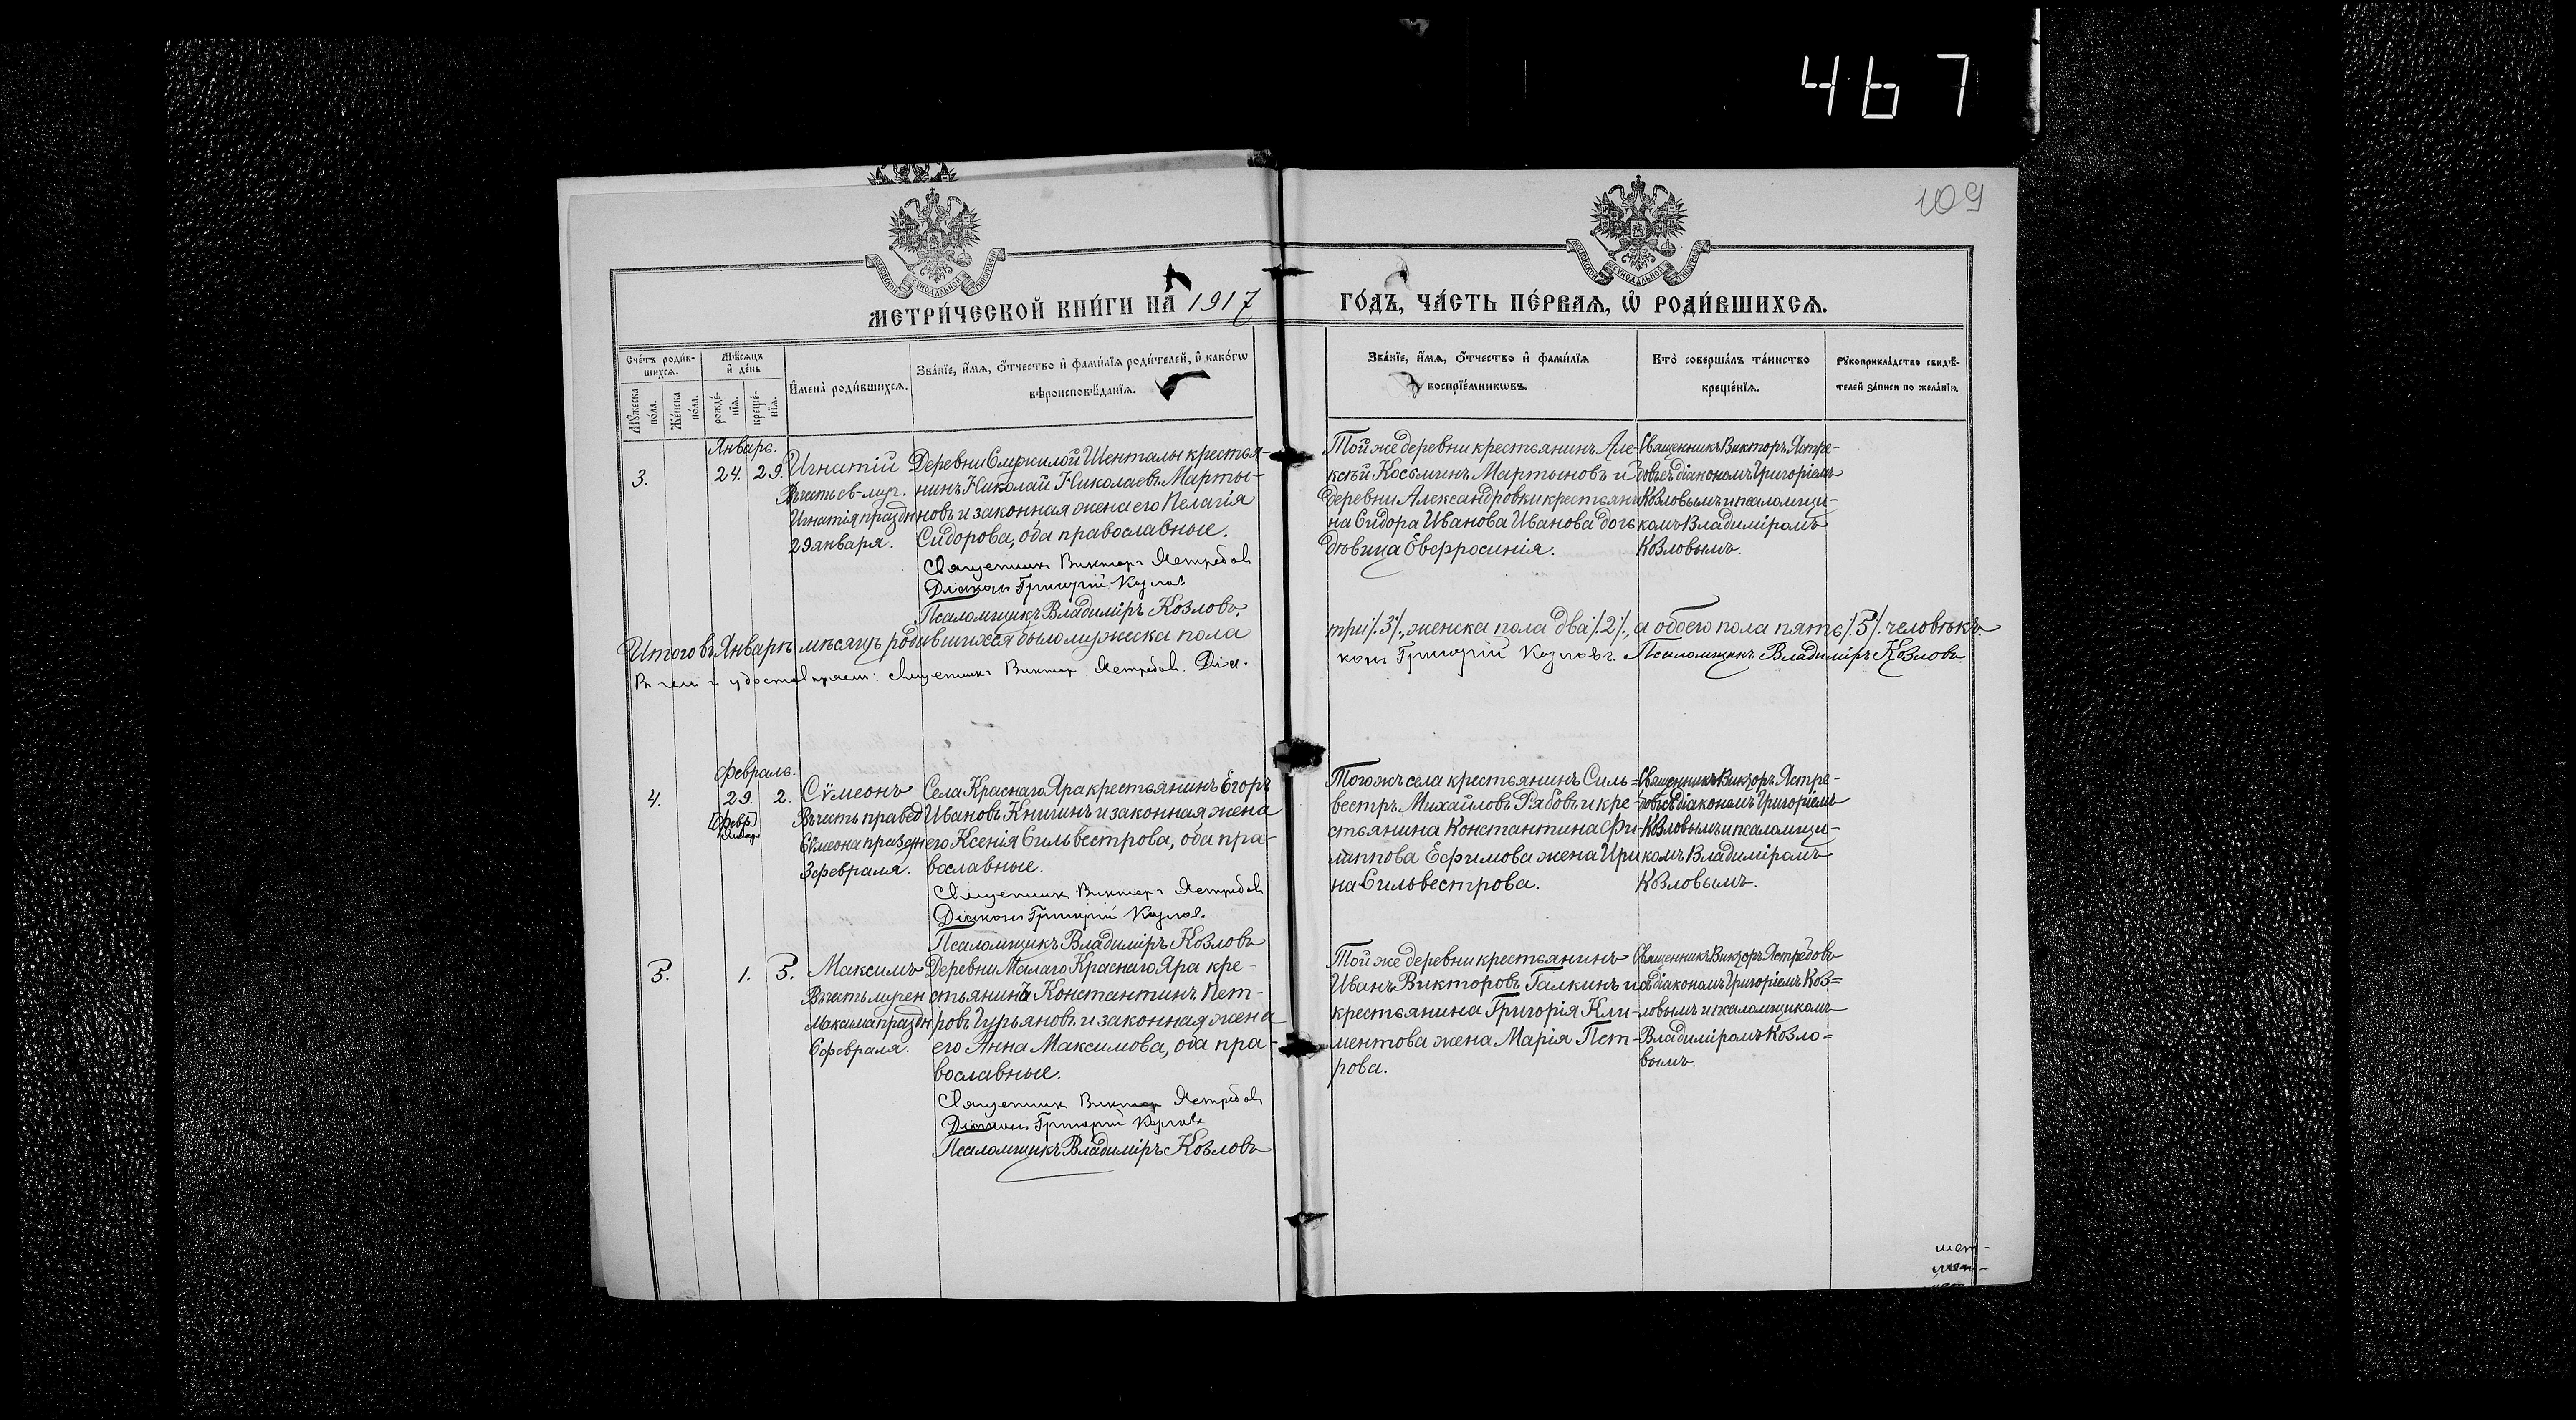 467
109
МЕТРИ́ЧЕСКОЙ КНИ́ГИ НА 1917 ГО́ДЪ, ЧА́СТЬ ПЕ́РВАЯ, Ѡ҆ РОДИ́ВШИХСЯ.
Сче́тъ роди́в-
шихся.
Мѣ́сяцъ
и҆ де́нь
Му́жеска
по́ла.
Же́нска
по́ла.
рожде́-
нїя.
креще́-
нїя.
И҆мена̀ роди́вшихся.
Зва́нїе, и҆́мя, ѻ҆́тчество и҆ фами́лїя роди́телей, и҆ како́гѡ
вѣроисповѣ́данїя.
Зва́нїе, и҆́мя, ѻ҆́тчество и҆ фами́лїя
воспрїе́мникѡвъ.
Кто̀ соверша́лъ та́инство
креще́нїя.
Рукоприкла́дство свидѣ́-
телей за́писи по жела́нїю.
Январь.
3.
24. 29.
Игнатій
Въ честь св-муч.
Игнатія праздн
29 января.
Деревни Смужилой Шенталы крестья-
нинъ Николай Николаевъ Марты-
новъ и законная жена его Пелагія
Сидорова, оба православные.
Священникъ Викторъ Ястребовъ
Діаконъ Григорій Козловъ
Псаломщикъ Владиміръ Козловъ.
Той же деревни крестьянинъ Але-
ксѣй Косьминъ Мартыновъ и
деревни Александровки крестьяни
на Сидора Иванова Иванова дочь
дѣвица Евфросинія.
Священникъ Викторъ Ястре-
бовъ съ діакономъ Григоріемъ
Козловымъ и псаломщи-
комъ Владиміромъ
Козловымъ.
Итого въ Январѣ мѣсяцѣ родившихся было мужеска пола три /.3/., женска пола два /.2/., а обоего пола пять /.5/. человѣкъ.
В чем и удостовѣряем: Священникъ Викторъ Ястребовъ. Діа-
конъ Григорій Козловъ. Псаломщикъ Владиміръ Козловъ.
Февраль.
4.
29. 2.
[Февр]
Январ
Сѵмеонъ
Въ честь правед
Сѵмеона праздн
3 февраля.
Села Краснаго Яра крестьянинъ Егоръ
Ивановъ Книгинъ и законная жена
его Ксенія Сильвестрова, оба пра-
вославные.
Священникъ Викторъ Ястребовъ
Діаконъ Григорій Козловъ
Псаломщикъ Владиміръ Козловъ
Того жъ села крестьянинъ Силь=
вестръ Михайловъ Рябовъ и кре-
стьянина Константина Фи-
липпова Ефимова жена Ири
на Сильвестрова.
Священникъ Викторъ Ястре-
бовъ съ діакономъ Григоріемъ
Козловымъ и псаломщи-
комъ Владиміромъ
Козловымъ.
5.
1. 5.
Максимъ
Въ честь мучен
Максима праздн
6 февраля.
Деревни Малаго Краснаго Яра кре-
стьянинъ Константинъ Пет-
ровъ Гурьяновъ и законная жена
его Анна Максимова, оба пра-
вославные.
Священникъ Викторъ Ястребовъ
Діаконъ Григорій Козловъ
Псаломщикъ Владиміръ Козловъ
Той же деревни крестьянинъ
Иванъ Викторовъ Галкинъ и
крестьянина Григорія Кли-
ментова жена Марія Пет-
рова.
Священникъ Викторъ Ястребовъ
съ діакономъ Григоріемъ Коз=
ловымъ и псаломщикомъ
Владиміромъ Козло=
вымъ.